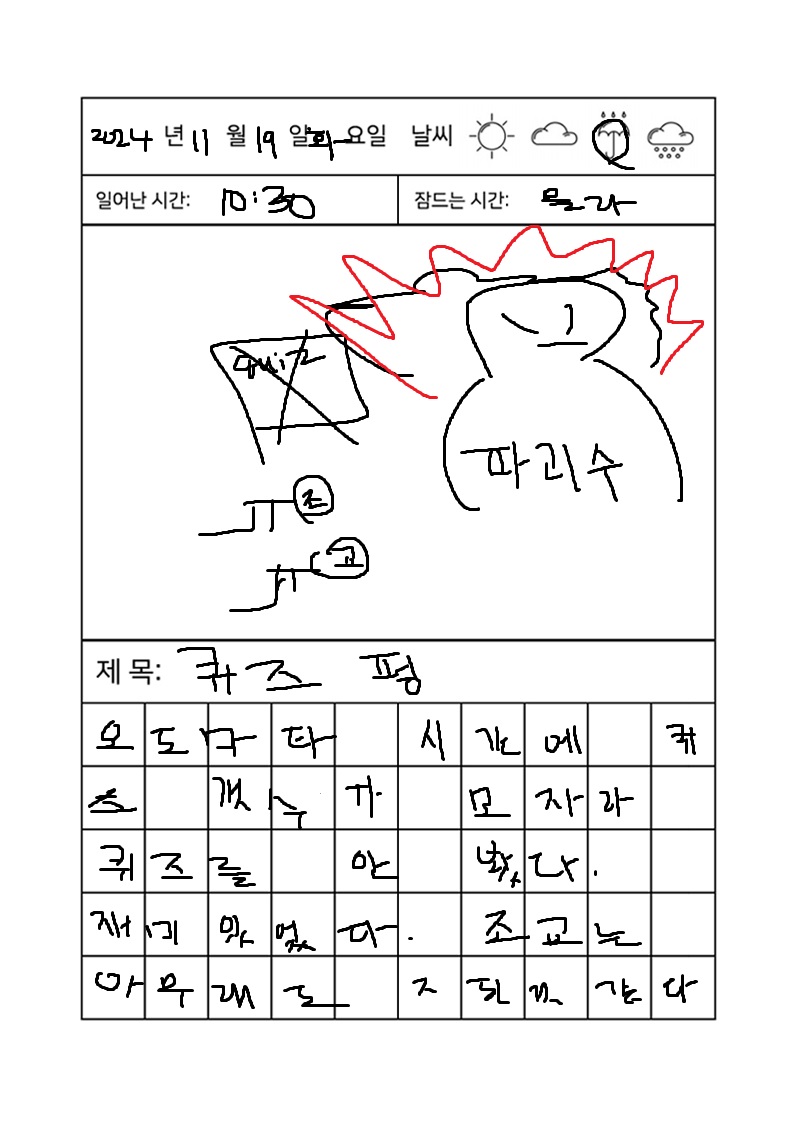 2024 년 11 월 19 일 화 요일 날씨
일어난 시간: 10:30 잠드는 시간: 몰라
Quiz
파괴수
조
교
제 목: 퀴즈 펑
오도구타 시간에 퀴
즈 갯수가 모자라
퀴즈를 안 봤다.
재미있었다. 조교는
아무래도